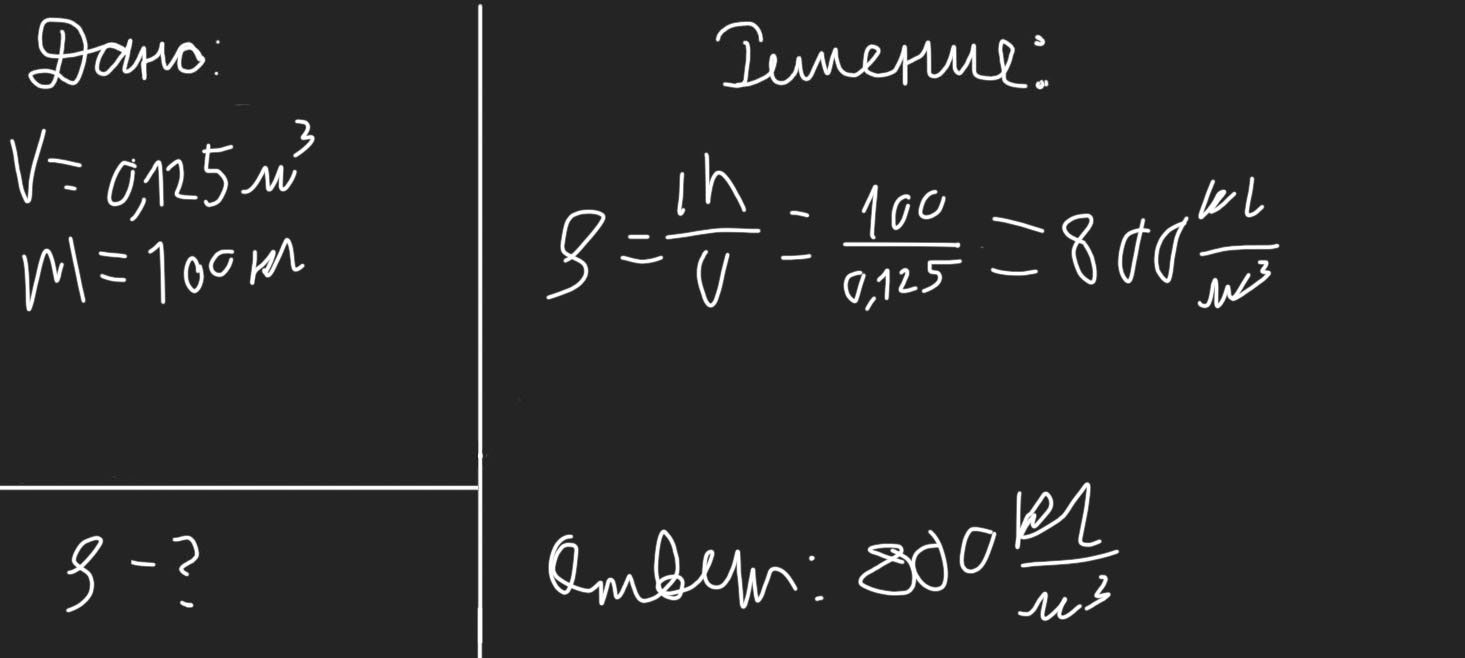 Дано:
V = 0,125 м³
m = 100 кг
ρ - ?
Решение:
ρ = m/V = 100/0,125 = 800 кг/м³
Ответ: 800 кг/м³